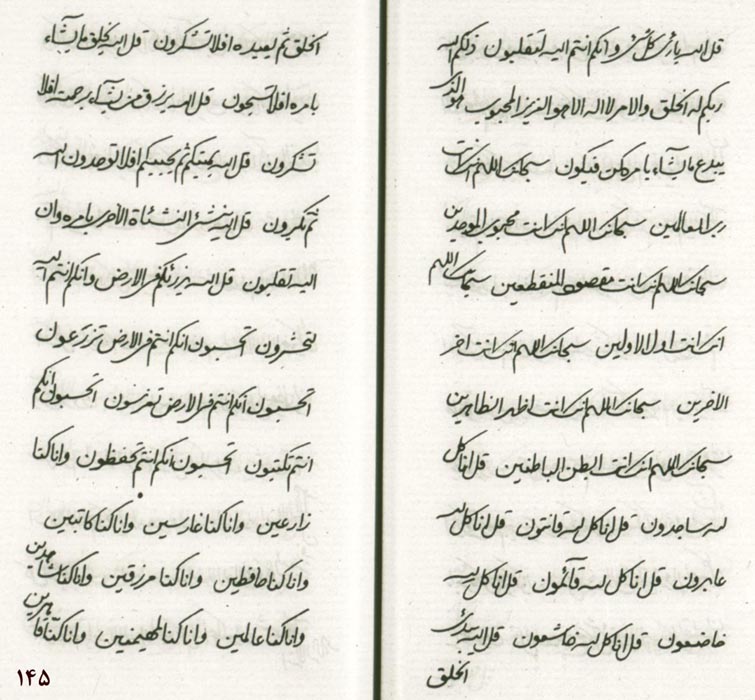 قل الله بارئ كل شئ وانكم انتم اليه لتقلبون ذلكم الله
ربكم له الخلق والامر لا اله الا هو العزيز المحبوب هو الذى
يبدع ما يشاء بامره كن فيكون سبحانك اللهم انك انت
رب العالمين سبحانك اللهم انك انت محبوب الموحدين
سبحانك اللهم انك انت مقصود المنقطعين سبحانك اللهم
انك انت اول الاولين سبحانك اللهم انك انت اخر
الاخرين سبحانك اللهم انك انت اظهر الظاهرين
سبحانك اللهم انك انت ابطن الباطنين قل انا كل
له ساجدون قل انا كل له قانتون قل انا كل لله
عابدون قل انا كل لله قائمون قل انا كل لله
خاضعون قل انا كل لله خاشعون قل الله يبدئ
الخلق
الخلق ثم يعيده افلا تشكرون قل الله يخلق ما يشاء
بامره افلا تسبحون قل الله يرزق من يشاء برحمته افلا
تشكرون قل الله يميتكم ثم يحييكم افلا توحدون الله
ثم تكبرون قل الله ينشئ النشئاة الاخرى بامره وان
اليه تقلبون قل الله يزرئكم فى الارض وانكم انتم اليه
لتحشرون اتحسبون انكم انتم فى الارض تزرعون
اتحسبون انكم انتم فى الارض تغرسون اتحسبون انكم
انتم تكتبون اتحسبون انكم انتم تحفظون وانا كنا
زارعين وانا كنا غارسين وانا كنا كاتبين
وانا كنا حافظين وانا كنا مرزقين وانا كنا شاهدين
وانا كنا عالمين وانا كنا مهيمنين وانا كنا قاهرين
١٤٥